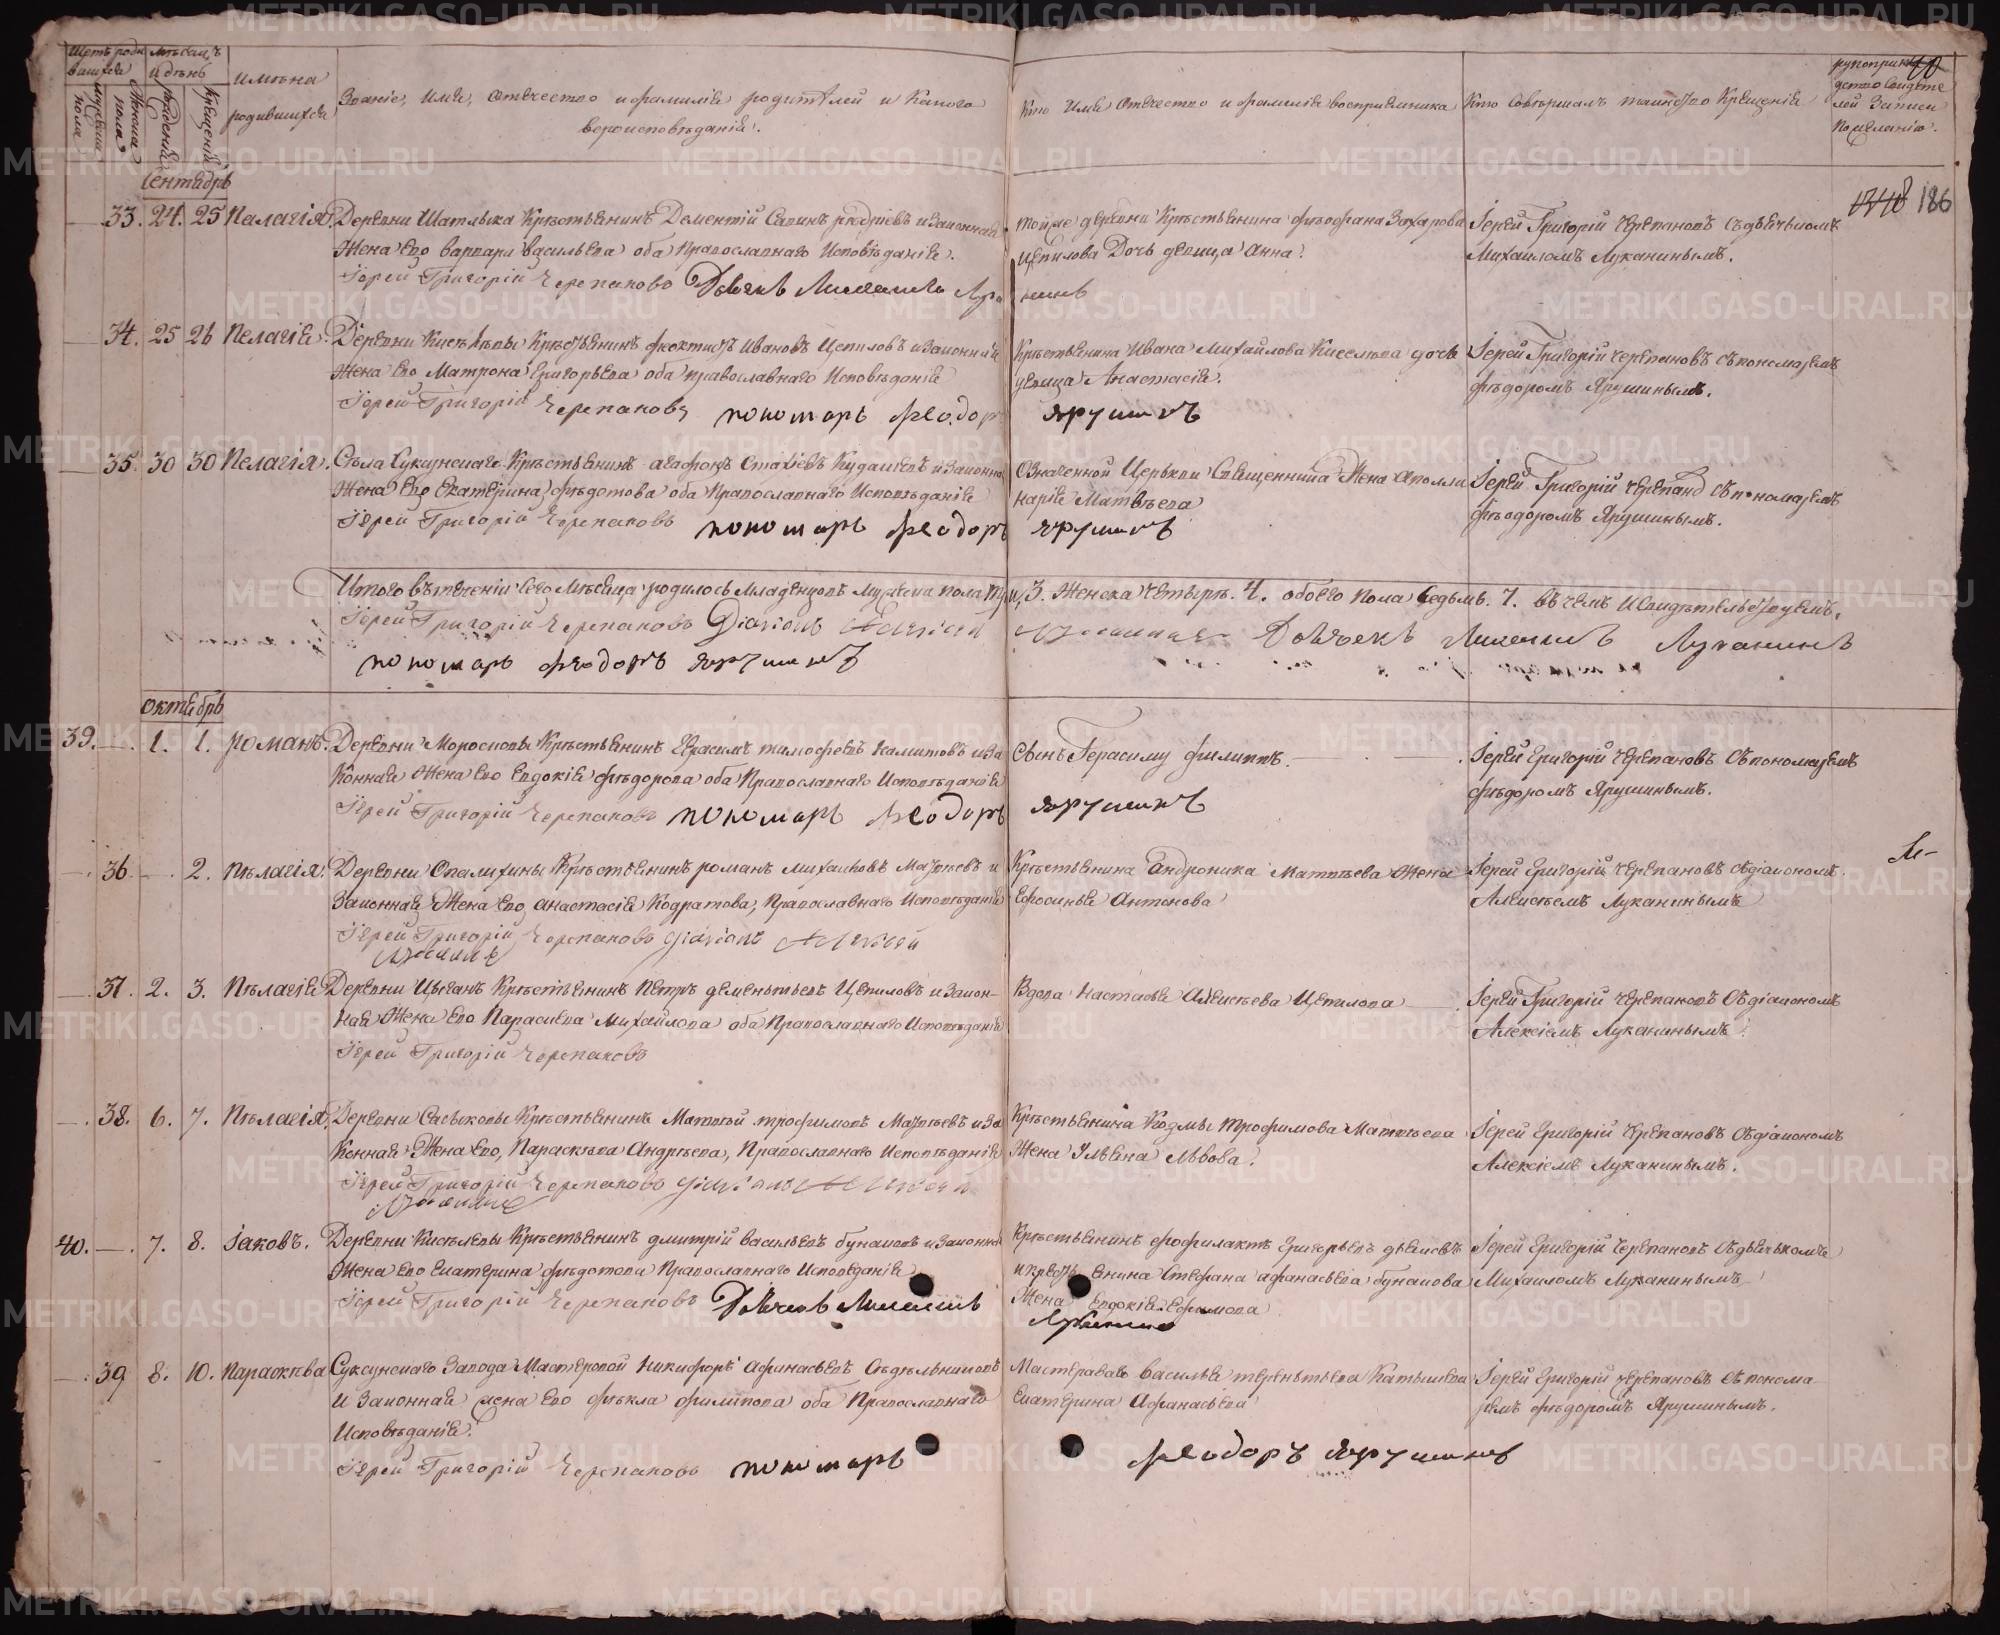 Щетъ роди
вшихся
мѣсяцъ
и день
имѣна
родившихся
Званіе, имя, отечество и фамилія родителей и какого
вероисповѣданія.
Кто имя отечество и фамилія восприемника
Кто совершалъ таинство крещенія
рукоприкла
дство свидете
лей записи
по желанію.
мужеска
пола
женска
пола
рожденія
крещенія
40
186
Сентябрь
33. 24. 25 Пелагія. Деревни Шатлыка Крестьянинъ Дементій и законная
Жена Его Варвара Васильева оба Православнаго Исповѣданія.
Іерей Григорій Черепановъ Дьячекъ Михаилъ Лука нинъ
той же деревни Крестьянина Феофана Захарова
Цепилова Дочь девица Анна.
Іерей Григорій Черепановъ съ дьячькомъ
Михаиломъ Луканинымъ.
34. 25 26 Пелагія. Деревни Киселевы Крестьянинъ Феоктистъ Ивановъ Цепиловъ и законная
Жена Его Матрона Григорьева оба православнаго Исповѣданія
Іерей Григорій Черепановъ пономарь Феодоръ Ярушинъ
Крестьянина Ивана Михайлова Киселева дочь
девица Анастасія.
Іерей Григорій Черепановъ съ пономаремъ
Фѣдоромъ Ярушинымъ.
35. 30 30 Пелагія. Села Суксунскаго Крестьянинъ Агафонъ и законная
Жена Его Екатерина Федотова оба Православнаго Исповѣданія
Іерей Григорій Черепановъ пономарь Феодоръ Ярушинъ
Означенной Церькви Священника Жена Аполли
нарія Матвѣева
Іерей Григорій Черепановъ съ пономаремъ
Фѣодоромъ Ярушинымъ.
Итого въ теченіи сего Мѣсяца родилось Младенцовъ Мужеска пола три, 3. Женска четыре. 4. обоего пола седьмь. 7. въ чемъ и свидѣтельствуемъ.
Іерей Григорій Черепановъ Діаконъ Алексій Луканинъ Дьячекъ Михаилъ Луканинъ
пономарь Феодоръ Ярушинъ
Октябрь
39. 1. 1. Романъ. Деревни Моросковы Крестьянинъ Герасимъ Тимофеевъ и за
конная Жена Его Евдокія Фѣдорова оба Православнаго Исповѣданія
Іерей Григорій Черепановъ пономарь Феодоръ Ярушинъ
Сынъ Герасиму Филиппъ.
Іерей Григорій Черепановъ съ пономаремъ
Фѣдоромъ Ярушинымъ.
36. 2. Пѣлагія. Деревни Опалихины Крестьянинъ Романъ Михаиловъ Матвеевъ и
Законная Жена Его Анастасія Кодратова, Православнаго Исповѣданія
Іерей Григорій Черепановъ Діаконъ Алексій
Луканинъ
Крестьянина Андроника Матвѣева Жена
Ефросинья Антонова
Іерей Григорій Черепановъ съ діакономъ
Алексѣемъ Луканинымъ
37. 2. 3. Пѣлагія Деревни Цыганъ Крестьянинъ Петръ Дементьевъ Цепиловъ и закон-
ная Жена Его Параскева Михайлова оба Православнаго Исповѣданія
Іерей Григорій Черепановъ
Вдова Настасья Алексѣева Цепилова
Іерей Григорій Черепановъ съ діакономъ
Алексіемъ Луканинымъ
38. 6. 7. Пѣлагія. Деревни Сасыковы Крестьянинъ Матвей Трофимовъ Матвеевъ и за
конная Жена Его, Параскѣва Андреева, Православнаго Исповѣданія
Іерей Григорій Черепановъ Діаконъ Алексій
Луканинъ
Крестьянина Козмы Трофимова Матвѣева
Жена Ульяна Львова.
Іерей Григорій Черепановъ съ діакономъ
Алексіемъ Луканинымъ.
40. 7. 8. Іаковъ. Деревни Киселевы Крестьянинъ Дмитрій Васильевъ Бунаковъ и законная
Жена Его Екатерина Фѣдотова Православнаго Исповеданія
Іерей Григорій Черепановъ Дьячекъ Михаилъ
Крестьянинъ Феофилактъ Григорьевъ
и крестьянина Стефана Афанасьева Бунакова
Жена Евдокія Ефимова
Луканинъ
Іерей Григорій Черепановъ съ дьячькомъ
Михаиломъ Луканинымъ
39 8. 10. Параскева Суксунскаго Завода Мастеровой Никифоръ Афанасьевъ Седѣльниковъ
и Законная жена Его Фѣкла Филипова оба Православнаго
Исповѣданія.
Іерей Григорій Черепановъ пономарь Феодоръ Ярушинъ
Мастероваго Василья Терентьева
Екатерина Афанасьева
Іерей Григорій Черепановъ съ понома
ремъ Фѣдоромъ Ярушинымъ.